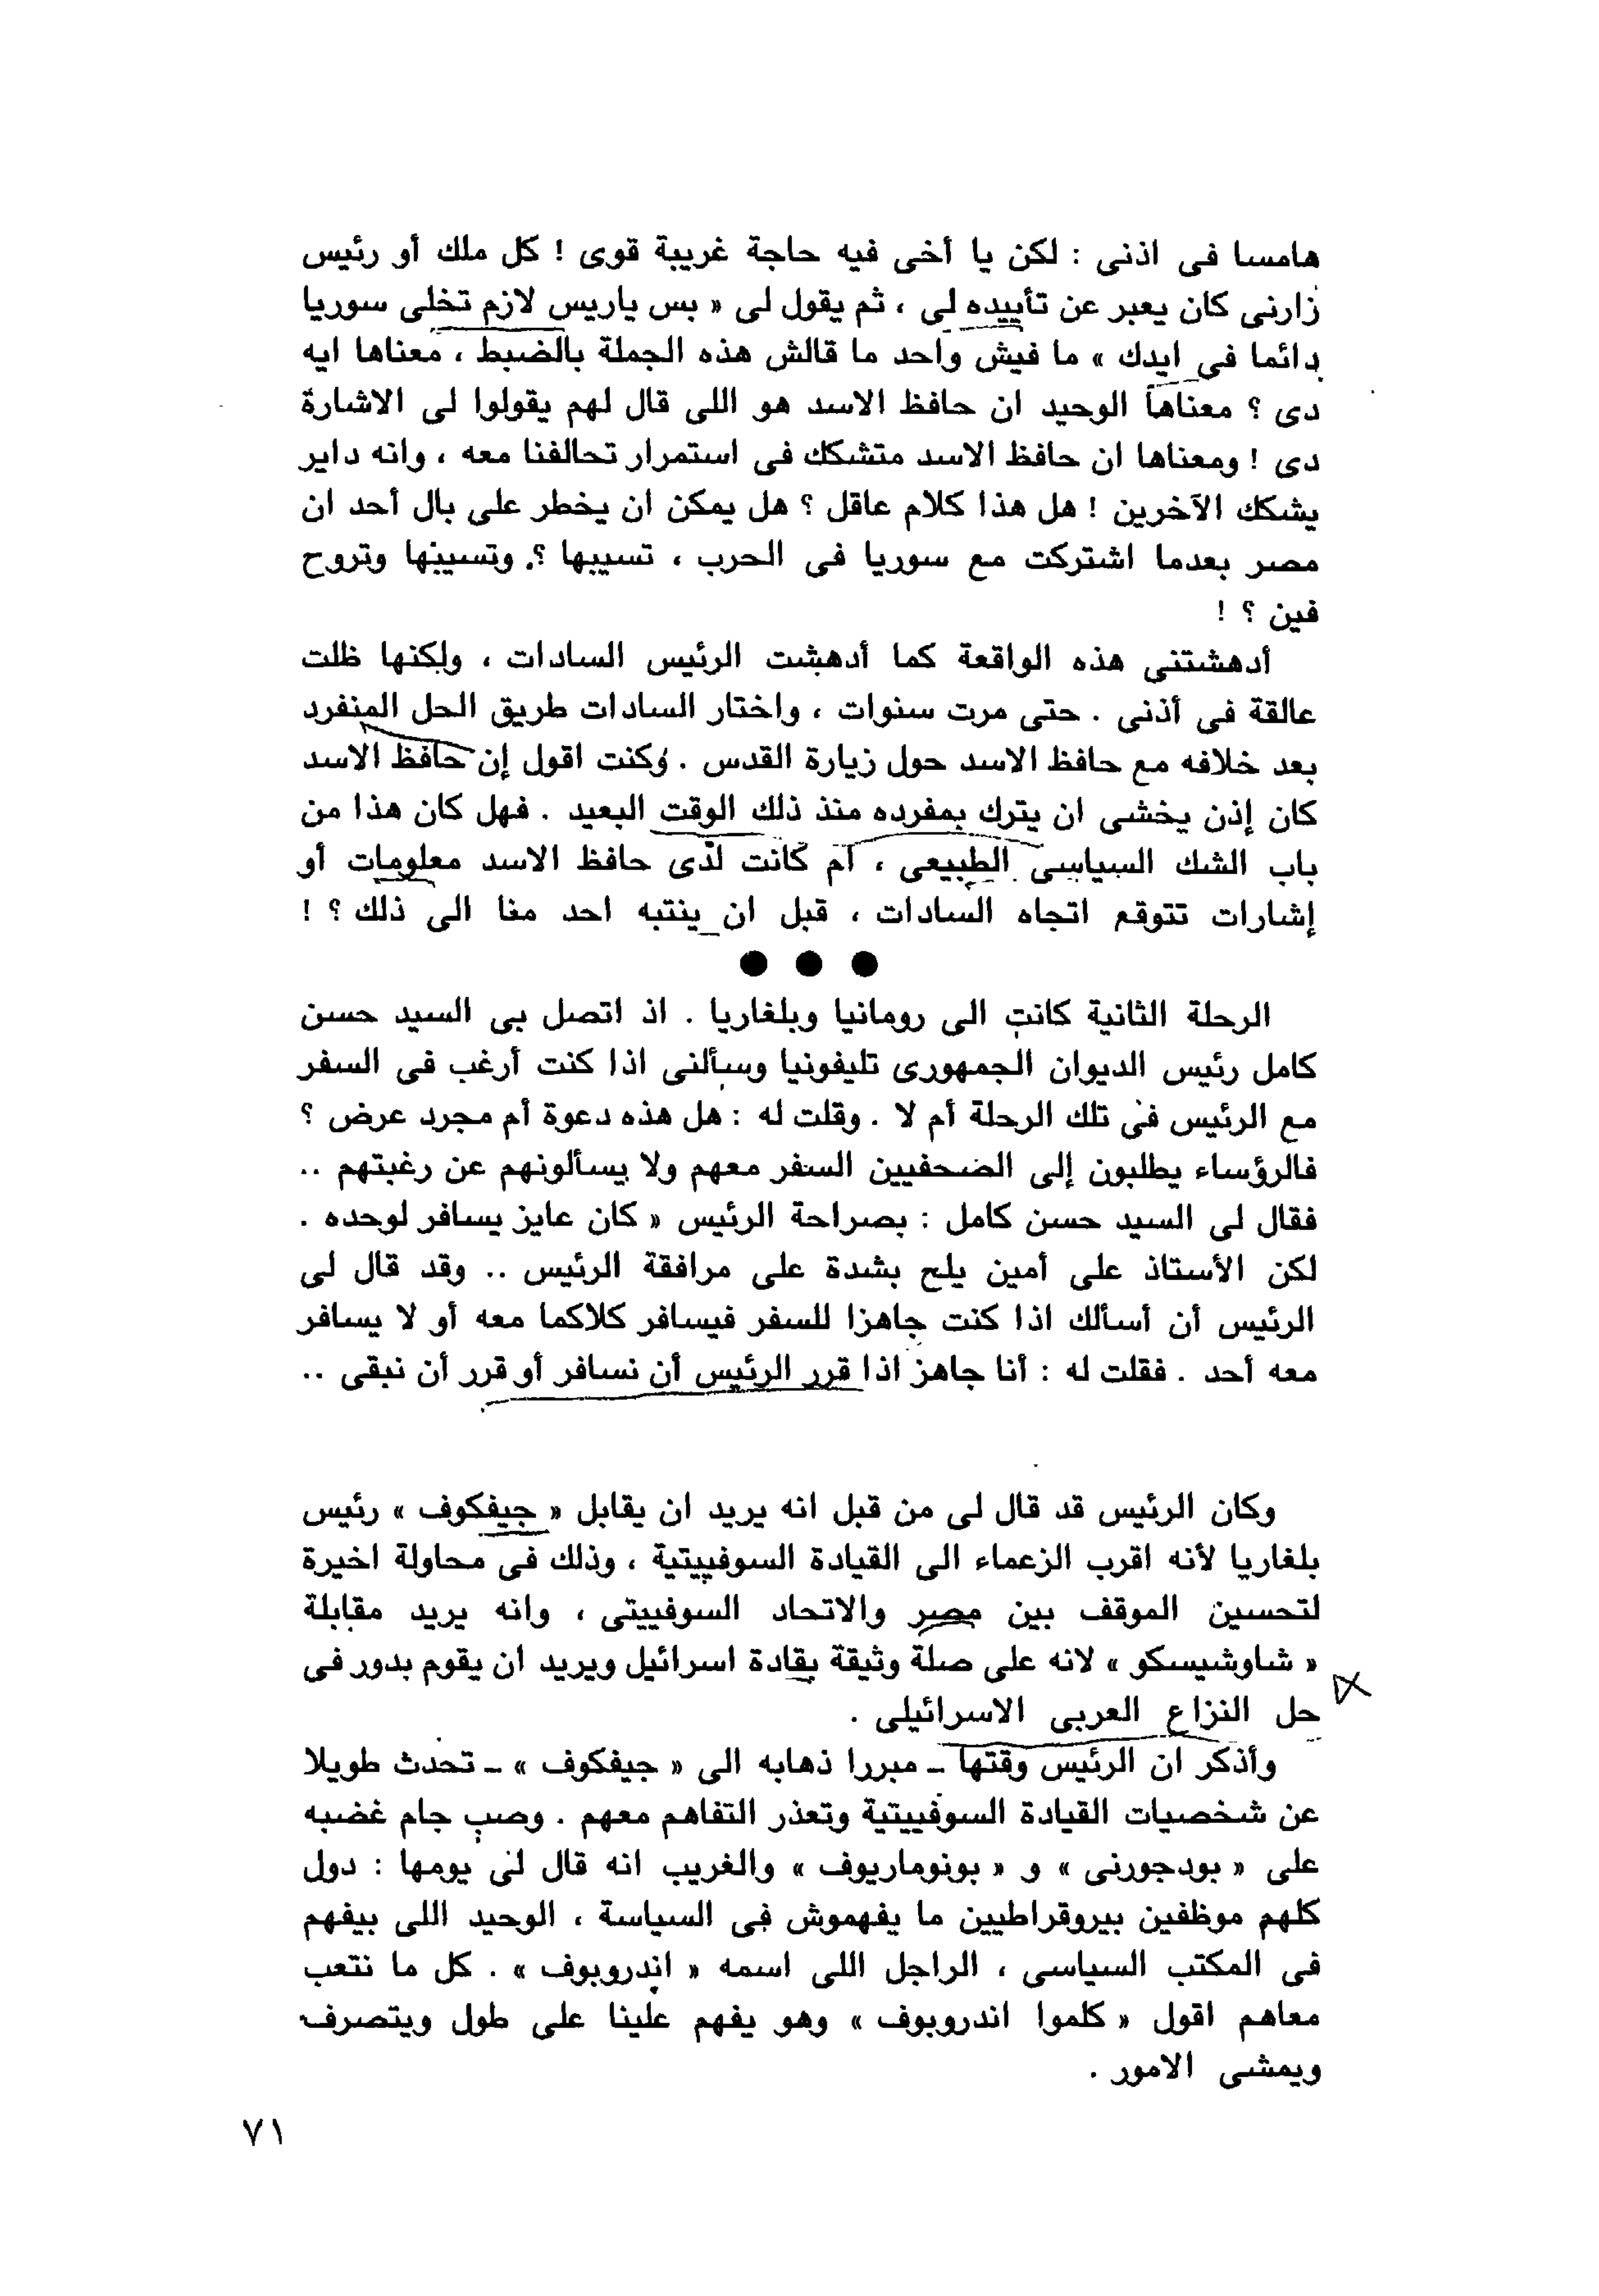 هامسا فى اذنى : لكن يا أخى فيه حاجة غريبة قوى ! كل ملك أو رئيس
زارنى كان يعبر عن تأييده لى ، ثم يقول لى « بس ياريس لازم تخلى سوريا
دائما فى ايدك » ما فيش واحد ما قالش هذه الجملة بالضبط ، معناها ايه
دى ؟ معناها الوحيد ان حافظ الاسد هو اللى قال لهم يقولوا لى الاشارة
دى ! ومعناها ان حافظ الاسد متشكك فى استمرار تحالفنا معه ، وانه داير
يشكك الآخرين ! هل هذا كلام عاقل ؟ هل يمكن ان يخطر على بال أحد ان
مصر بعدما اشتركت مع سوريا فى الحرب ، تسيبها ؟ وتسيبها وتروح
فين ؟ !
أدهشتنى هذه الواقعة كما أدهشت الرئيس السادات ، ولكنها ظلت
عالقة فى أذنى . حتى مرت سنوات ، واختار السادات طريق الحل المنفرد
بعد خلافه مع حافظ الاسد حول زيارة القدس . وكنت اقول إن حافظ الاسد
كان إذن يخشى ان يترك بمفرده منذ ذلك الوقت البعيد . فهل كان هذا من
باب الشك السياسى الطبيعى ، أم كانت لدى حافظ الاسد معلومات أو
إشارات تتوقع اتجاه السادات ، قبل ان ينتبه احد منا الى ذلك ؟ !
● ● ●
الرحلة الثانية كانت الى رومانيا وبلغاريا . اذ اتصل بى السيد حسن
كامل رئيس الديوان الجمهورى تليفونيا وسألنى اذا كنت أرغب فى السفر
مع الرئيس فى تلك الرحلة أم لا . وقلت له : هل هذه دعوة أم مجرد عرض ؟
فالرؤساء يطلبون إلى الصحفيين السفر معهم ولا يسألونهم عن رغبتهم ..
فقال لى السيد حسن كامل : بصراحة الرئيس « كان عايز يسافر لوحده .
لكن الأستاذ على أمين يلح بشدة على مرافقة الرئيس .. وقد قال لى
الرئيس أن أسألك اذا كنت جاهزا للسفر فيسافر كلاكما معه أو لا يسافر
معه أحد . فقلت له : أنا جاهز اذا قرر الرئيس أن نسافر أو قرر أن نبقى ..
وكان الرئيس قد قال لى من قبل انه يريد ان يقابل « جيفكوف » رئيس
بلغاريا لأنه اقرب الزعماء الى القيادة السوفييتية ، وذلك فى محاولة اخيرة
لتحسين الموقف بين مصر والاتحاد السوفييتى ، وانه يريد مقابلة
« شاوشيسكو » لانه على صلة وثيقة بقادة اسرائيل ويريد ان يقوم بدور فى
حل النزاع العربى الاسرائيلى .
وأذكر ان الرئيس وقتها – مبررا ذهابه الى « جيفكوف » – تحدث طويلا
عن شخصيات القيادة السوفييتية وتعذر التفاهم معهم . وصب جام غضبه
على « بودجورنى » و « بونوماريوف » والغريب انه قال لى يومها : دول
كلهم موظفين بيروقراطيين ما يفهموش فى السياسة ، الوحيد اللى بيفهم
فى المكتب السياسى ، الراجل اللى اسمه « اندروبوف » . كل ما نتعب
معاهم اقول « كلموا اندروبوف » وهو يفهم علينا على طول ويتصرف
ويمشى الامور .
٧١